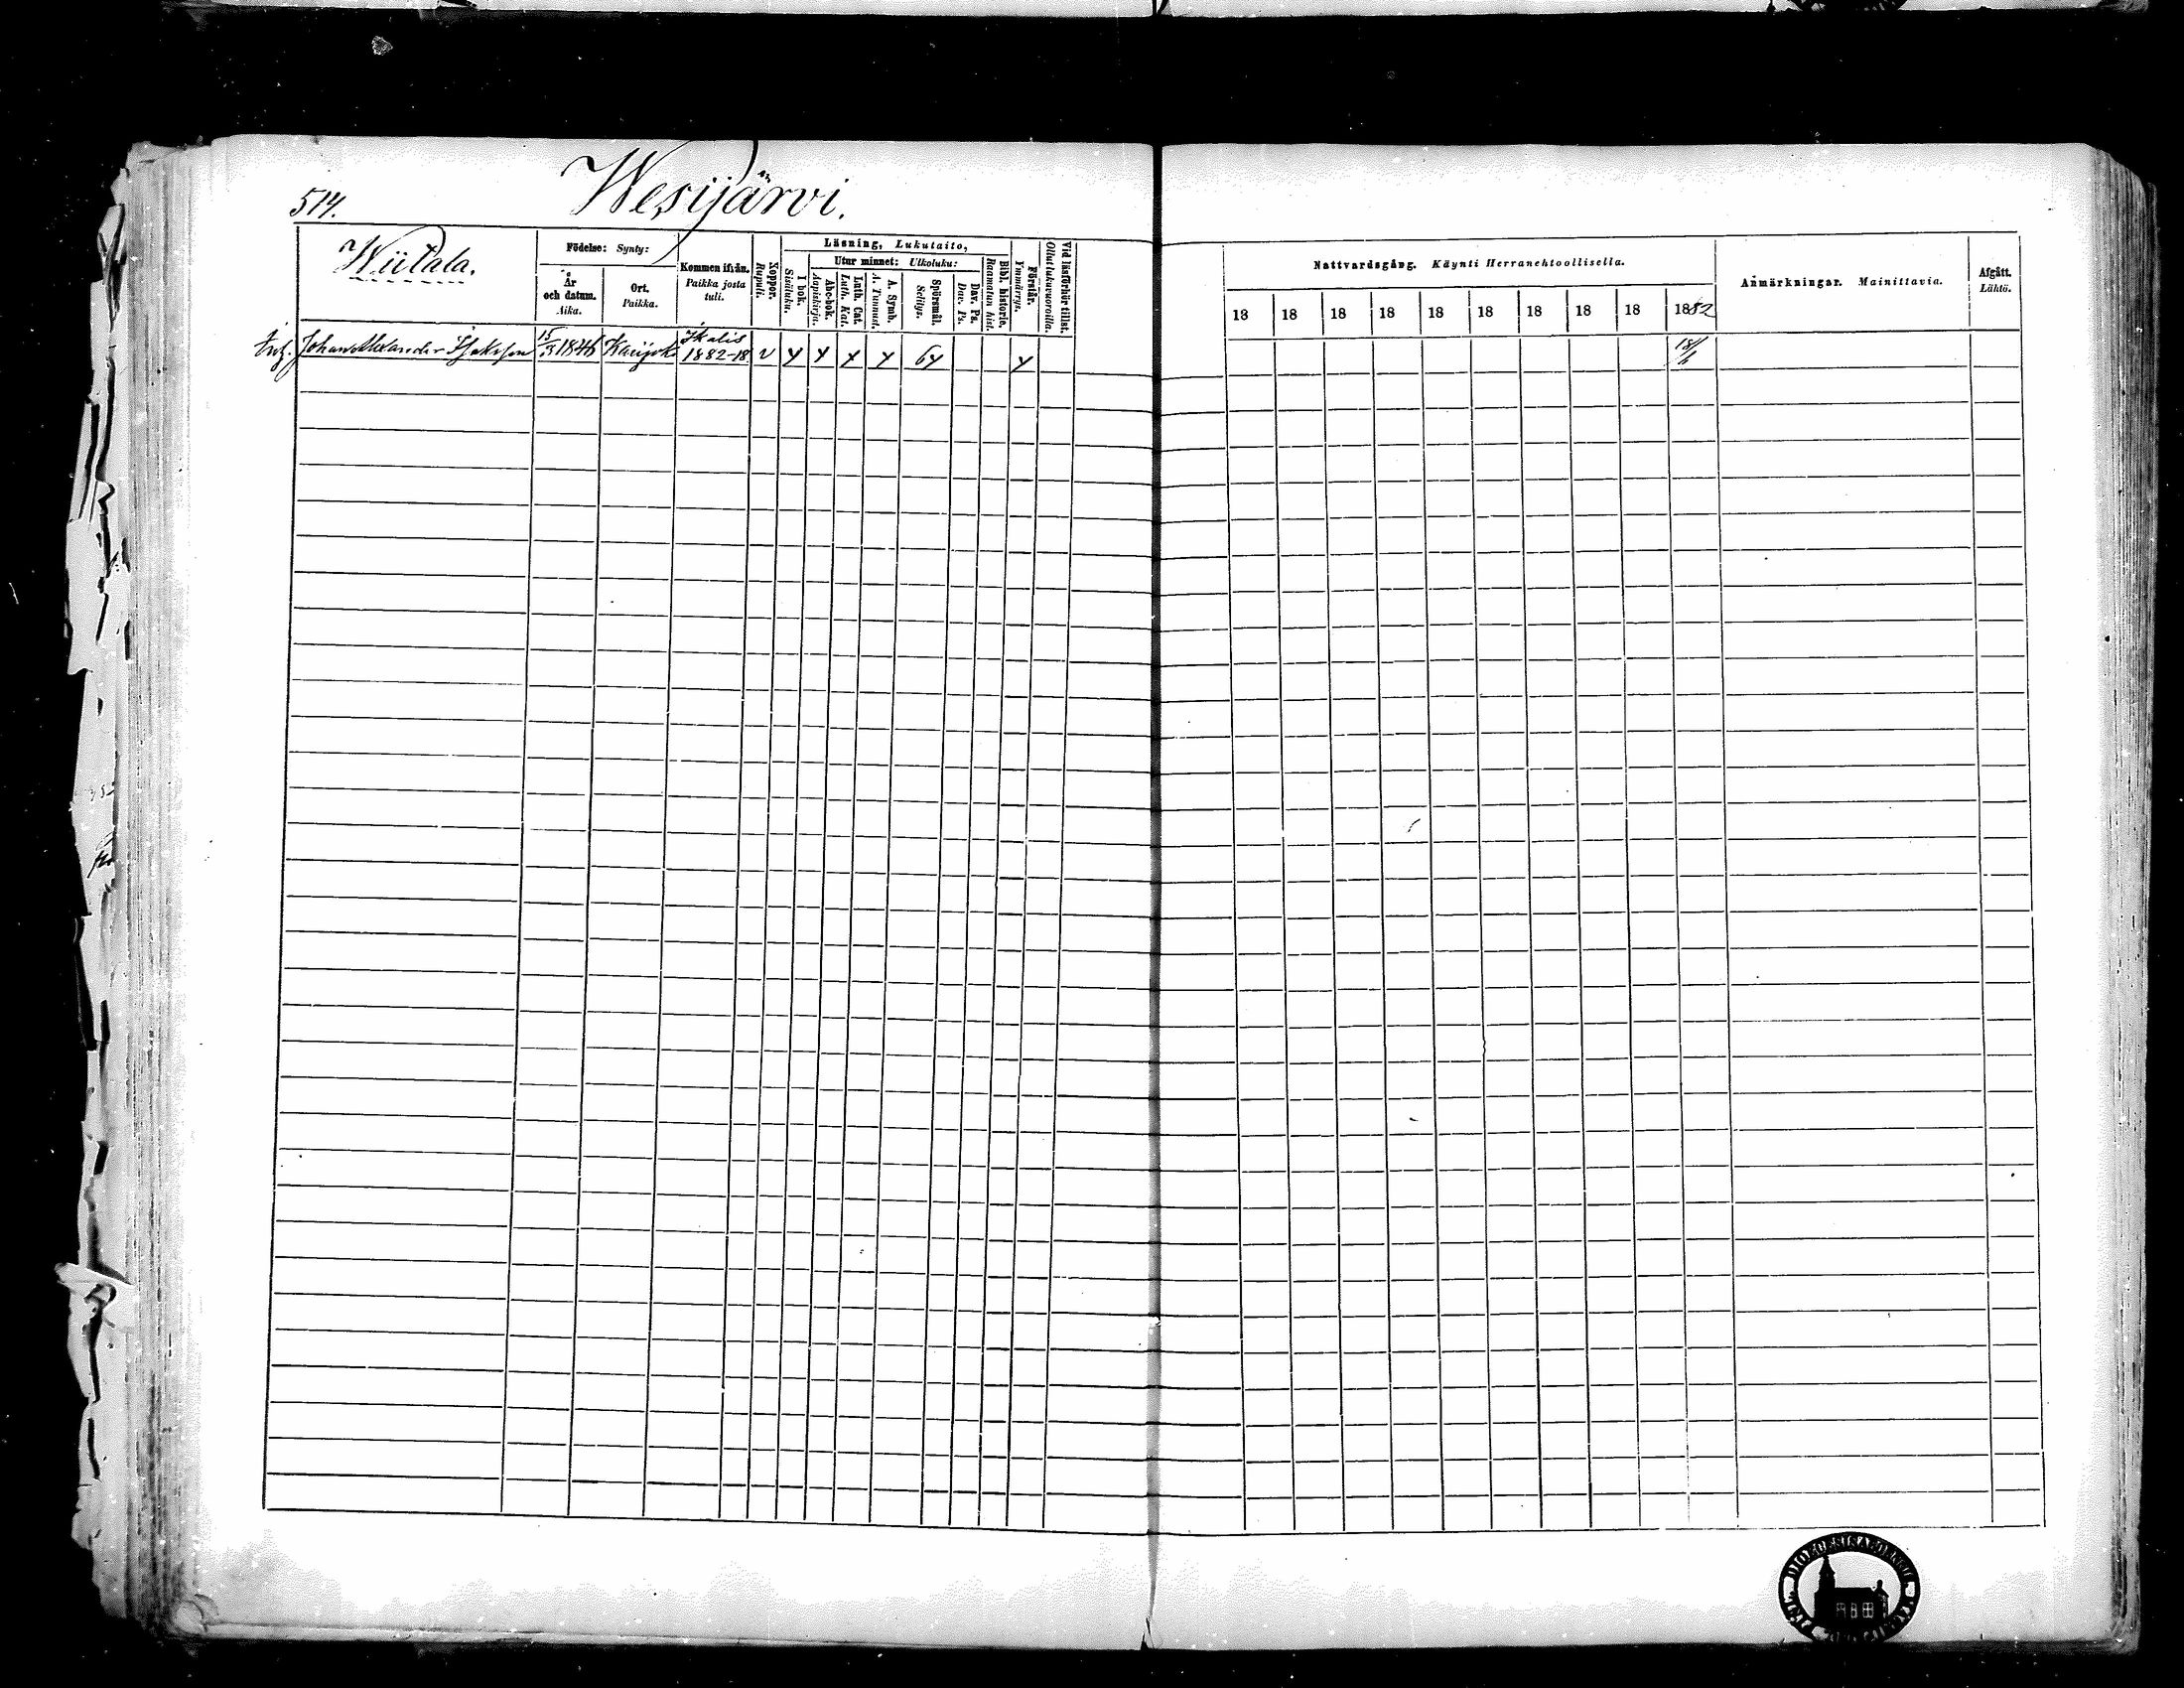 514.
Wesijärvi.
Wiitala.
Födelse: Synty:
År och datum. Aika.
Ort. Paikka.
Kommen ifrån. Paikka josta tuli.
Koppor. Rupuli.
Läsning, Lukutaito,
I bok. Sisäluku.
Utur minnet: Ulkoluku:
Abc-bok. Aapiskirja.
Luth. Cat. Luth. Kat.
A. Symb. A. Tunnust.
Spörsmål. Selitys.
Dav. Ps. Dav. Ps.
Bibl. historie. Raamatun hist.
Förstår. Ymmärrys.
Vid läsförhör tillst. Ollut lukuvuoroilla.
Nattvardsgång. Käynti Herranehtoollisella.
18 18 18 18 18 18 18 18 18 1882
Anmärkningar. Mainittavia.
Afgått. Lähtö.
Johan Alexander 15/3 1846 Ikalis 1882-18 v x x x x 64 x 18/6